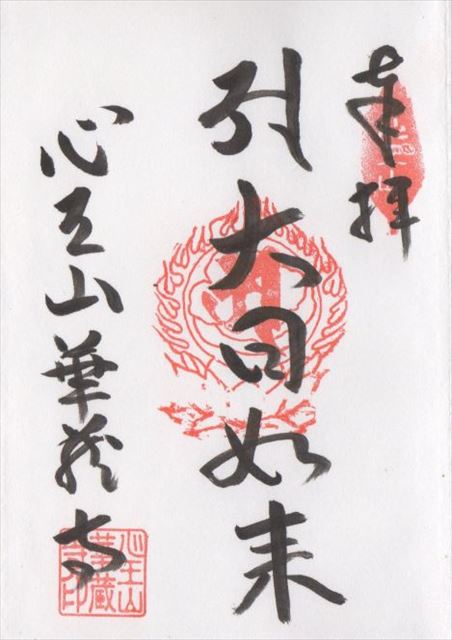 奉拝
引大日如来
心王山華蔵寺
心王山
華蔵
寺印